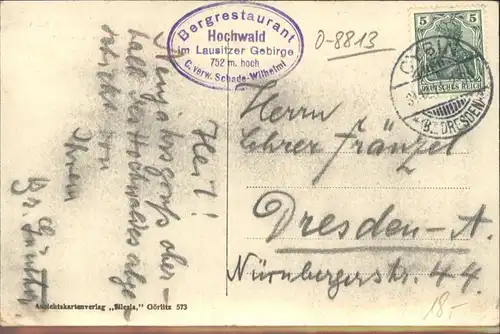 Bergrestaurant
Hochwald
im Lausitzer Gebirge
752 m. hoch
C. verw. Schade-Wilhelmi
D-8813
5 5
DEUTSCHES REICH
(BZ. DRESDEN)
Heil!
Neujahrsgruß ober-
halb des Hochwaldes abge-
schickt von
Ihrem
Günther
Herrn
Lehrer Fränzel
Dresden-A.
Nürnbergerstr. 44.
18.-
Ansichtskartenverlag „Silesia," Görlitz 573